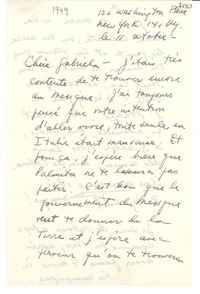 1949
122 Washington Place
New York 14, Ny.
le 11 octobre -
Chère Gabriela - J'étais très
contente de te trouver encore
au Mexique. J'ai toujours
pensé que votre intention
d'aller vivre, toute seule, en
Italie était mauvaise. Et
j'espère bien que
Palmita ne te laissera pas
partir. C'est bon que le
gouvernement du Mexique
veut te donner de la
terre et j'espère avec
qu'on te trouvera